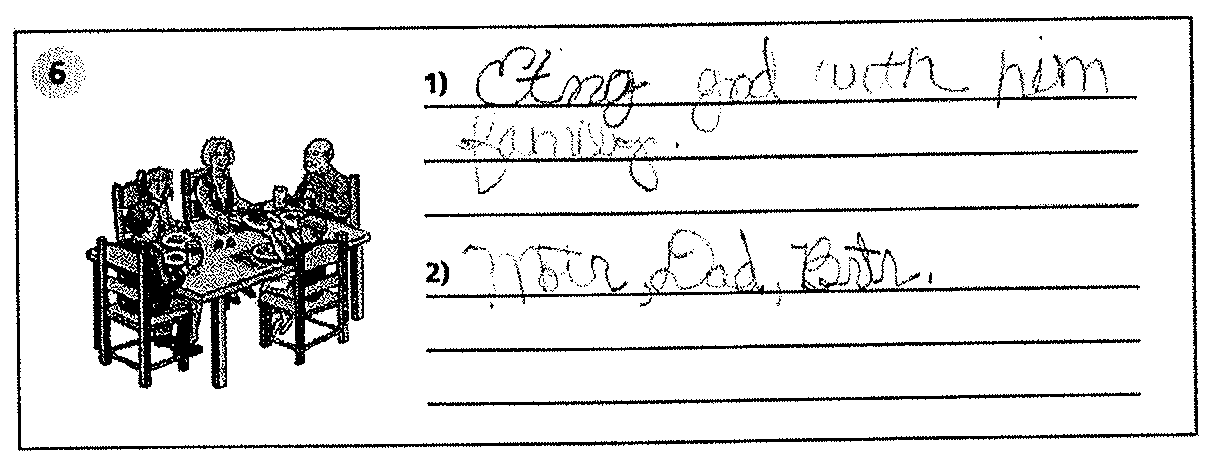 6
1) Etng god with him
family.
2) Motr, Dad, Brotr.